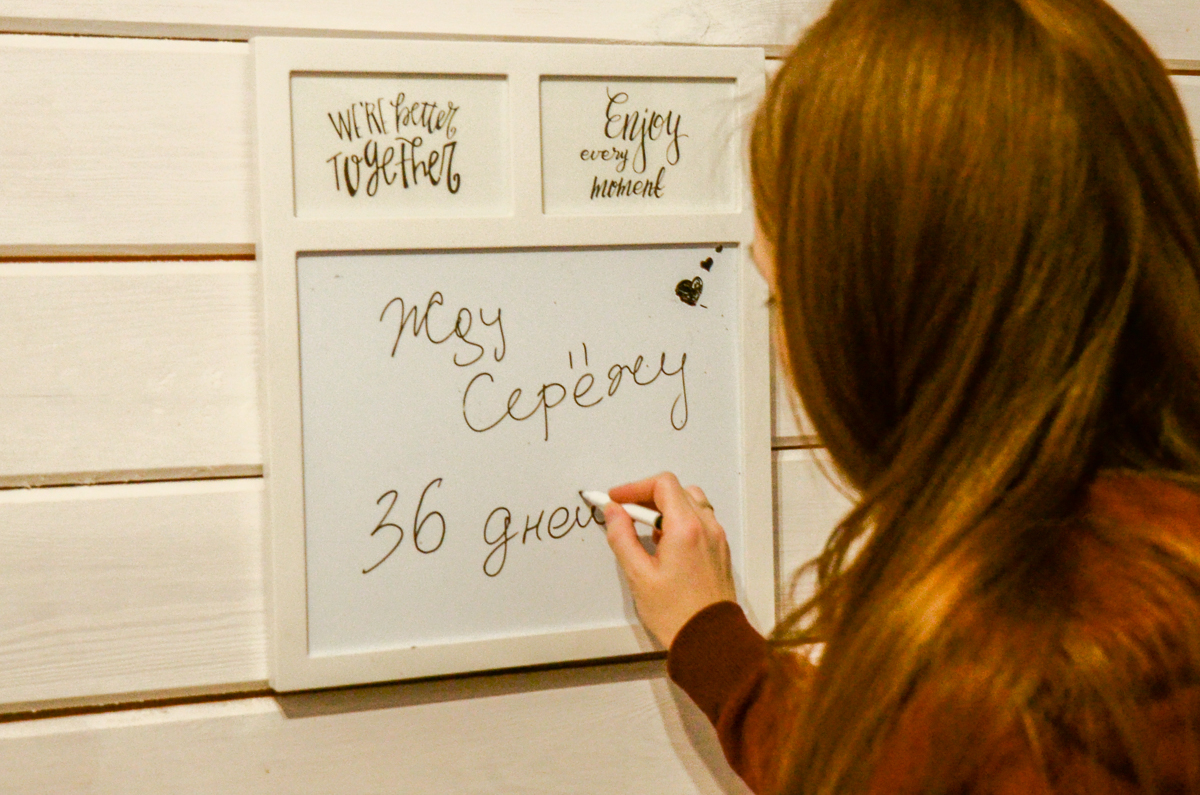 WE'RE better
TOgETher
Enjoy
every
moment
Жду
Серёжу
36 дней